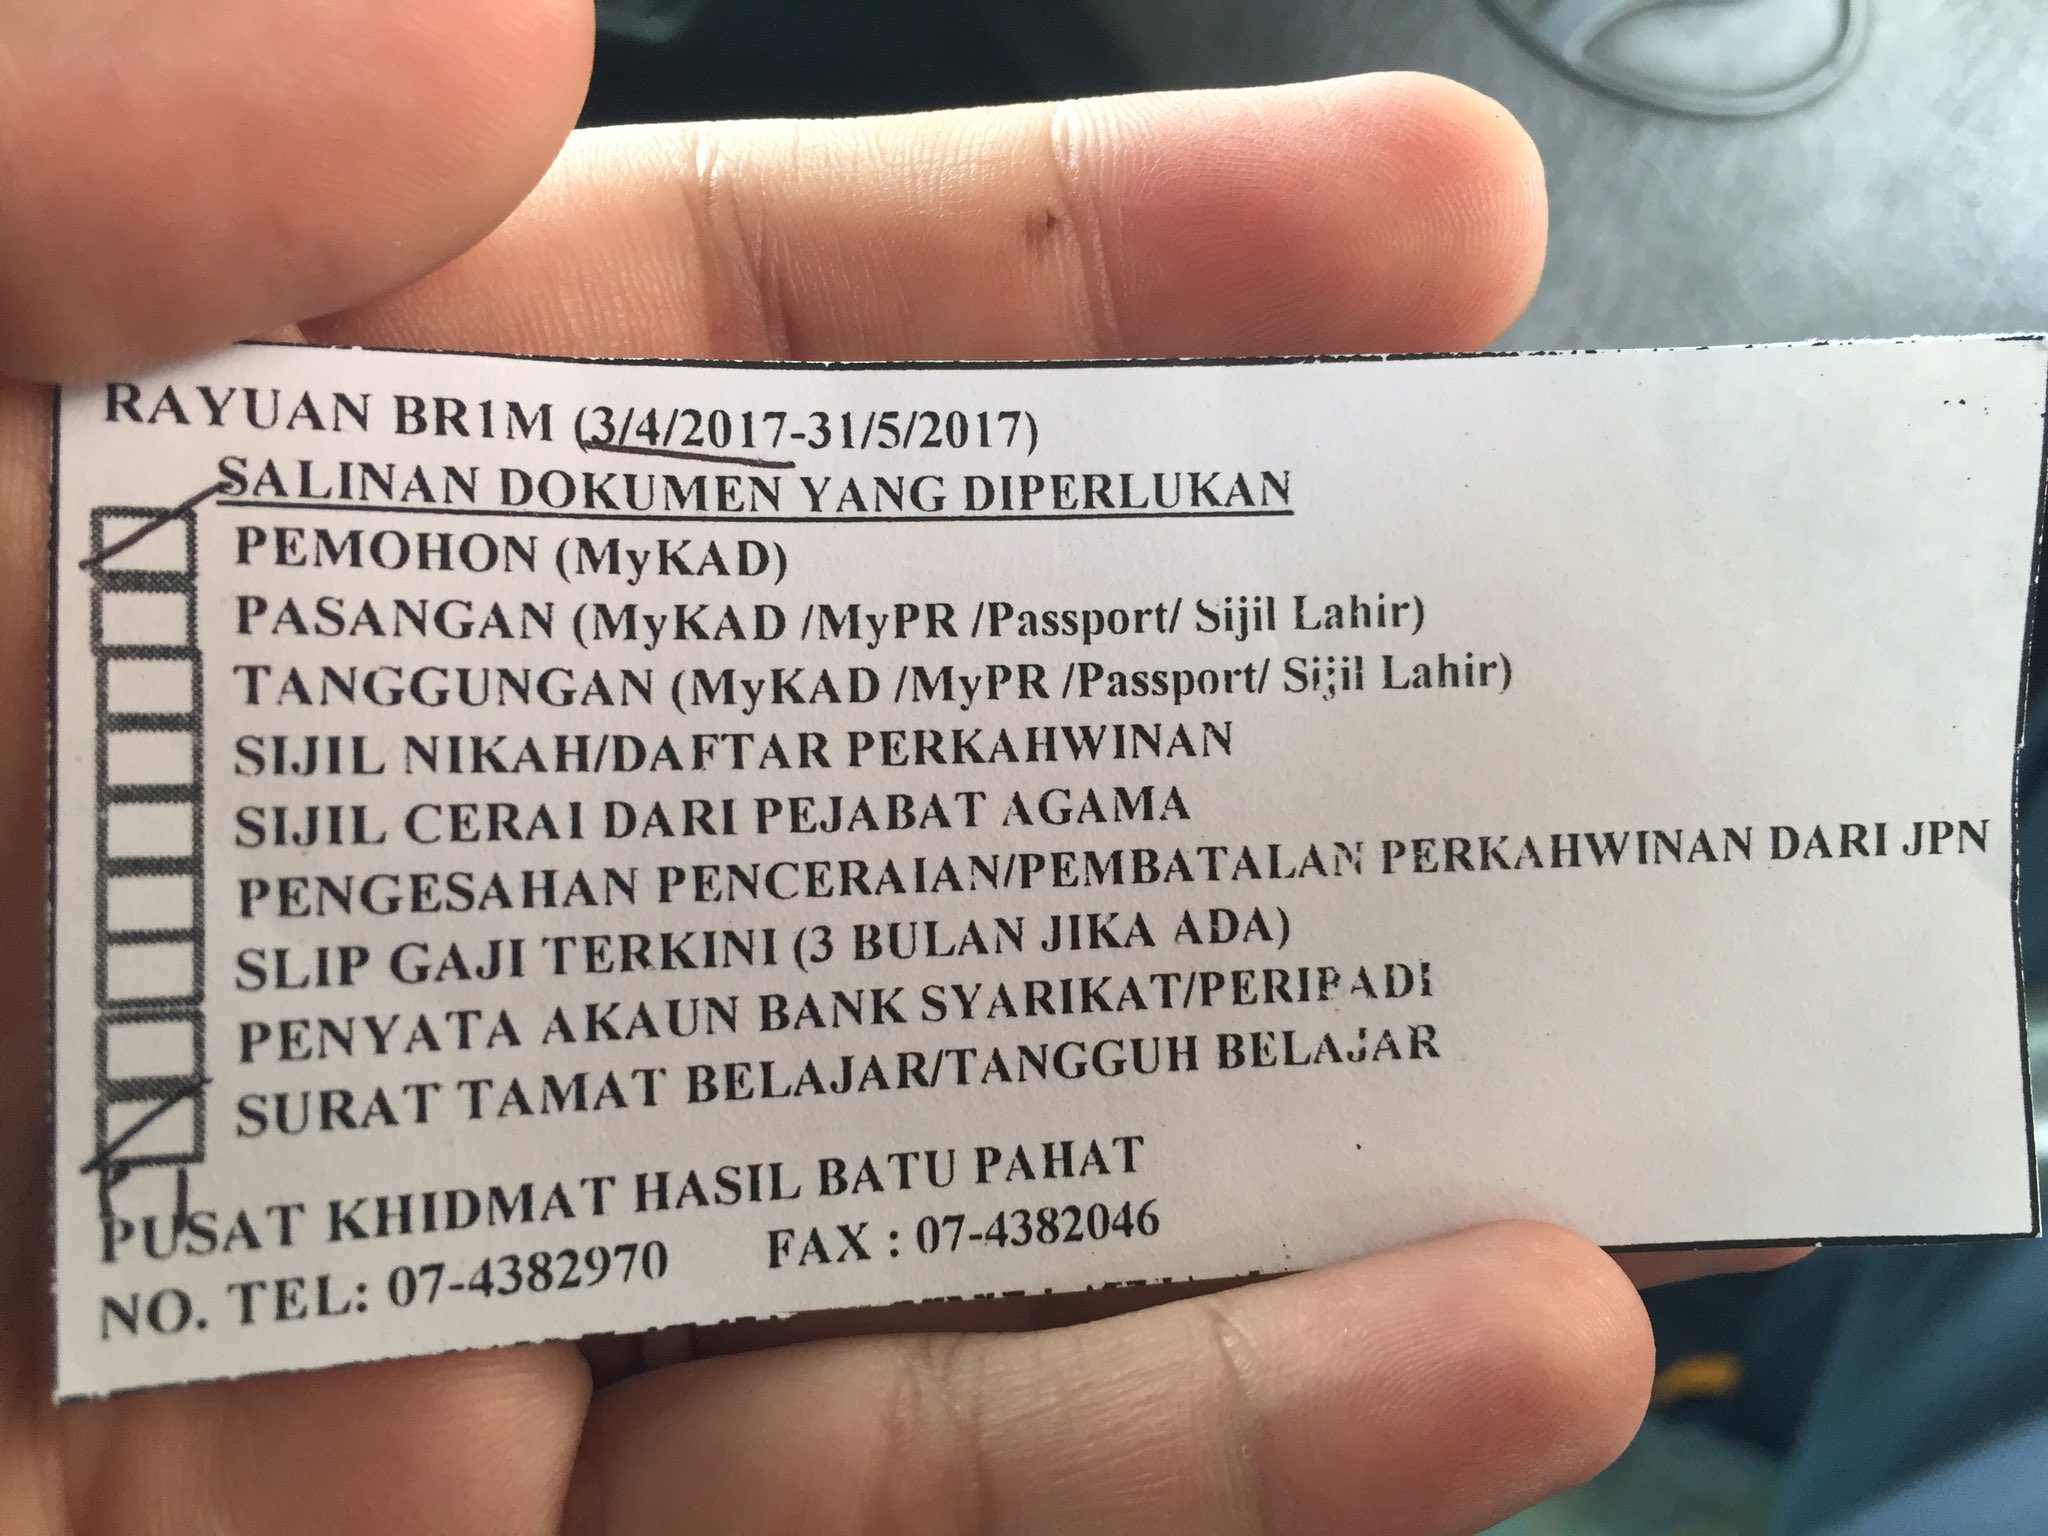 RAYUAN BR1M (3/4/2017-31/5/2017)
SALINAN DOKUMEN YANG DIPERLUKAN
PEMOHON (MyKAD)
PASANGAN (MyKAD /MyPR /Passport/ Sijil Lahir)
TANGGUNGAN (MyKAD /MyPR /Passport/ Sijil Lahir)
SIJIL NIKAH/DAFTAR PERKAHWINAN
SIJIL CERAI DARI PEJABAT AGAMA
PENGESAHAN PENCERAIAN/PEMBATALAN PERKAHWINAN DARI JPN
SLIP GAJI TERKINI (3 BULAN JIKA ADA)
PENYATA AKAUN BANK SYARIKAT/PERIBADI
SURAT TAMAT BELAJAR/TANGGUH BELAJAR
PUSAT KHIDMAT HASIL BATU PAHAT
NO. TEL: 07-4382970 FAX : 07-4382046